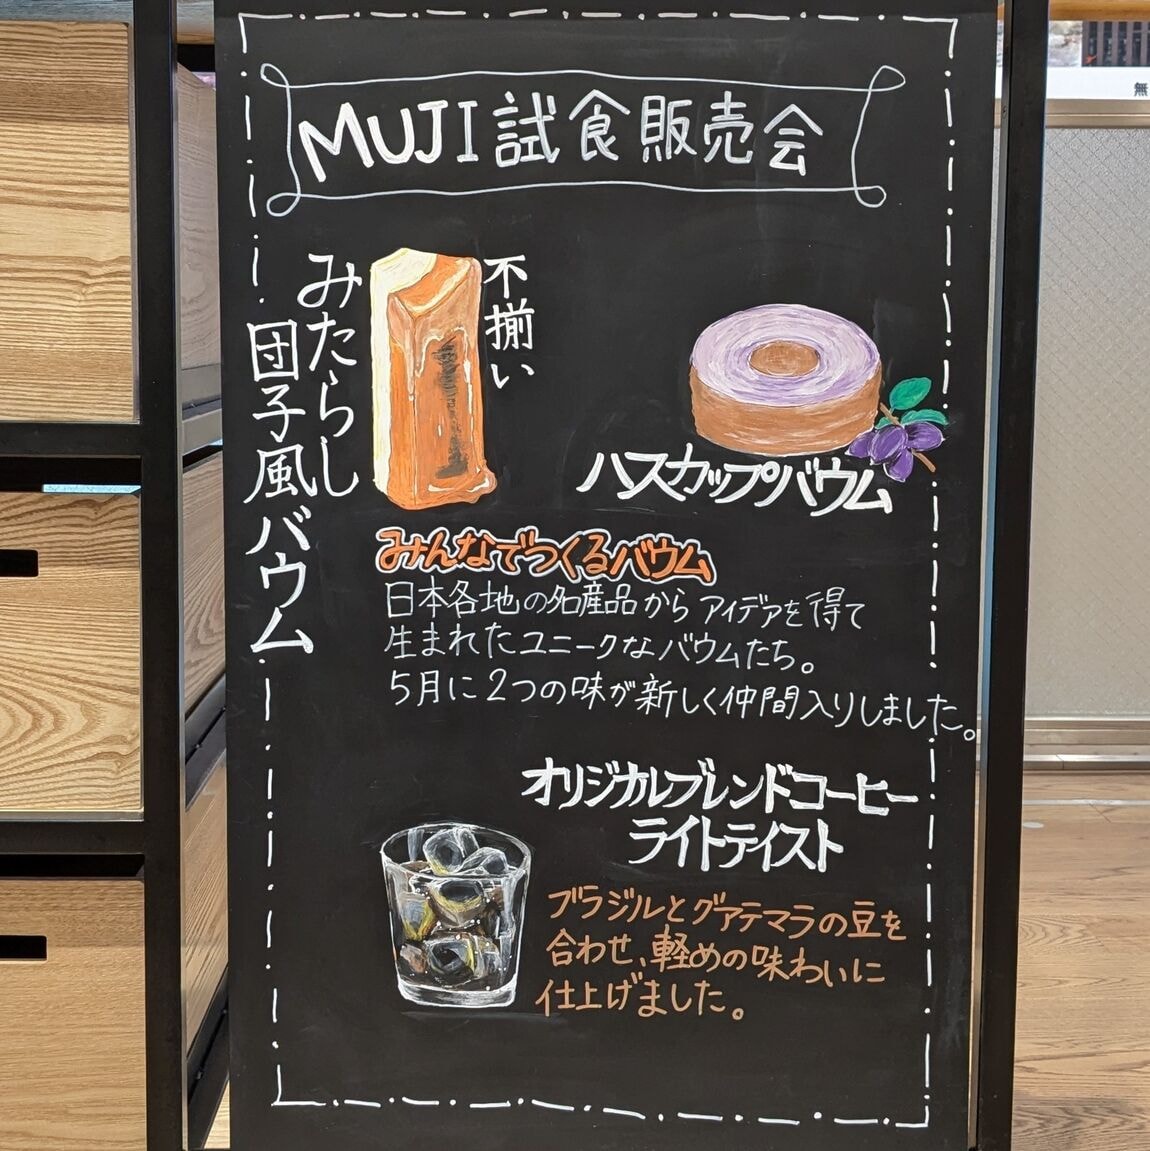 MUJI試食販売会
不揃い
みたらし
団子風バウム
ハスカップバウム
みんなでつくるバウム
日本各地の名産品からアイデアを得て
生まれたユニークなバウムたち。
5月に2つの味が新しく仲間入りしました。
オリジナルブレンドコーヒー
ライトテイスト
ブラジルとグアテマラの豆を
合わせ、軽めの味わいに
仕上げました。
無